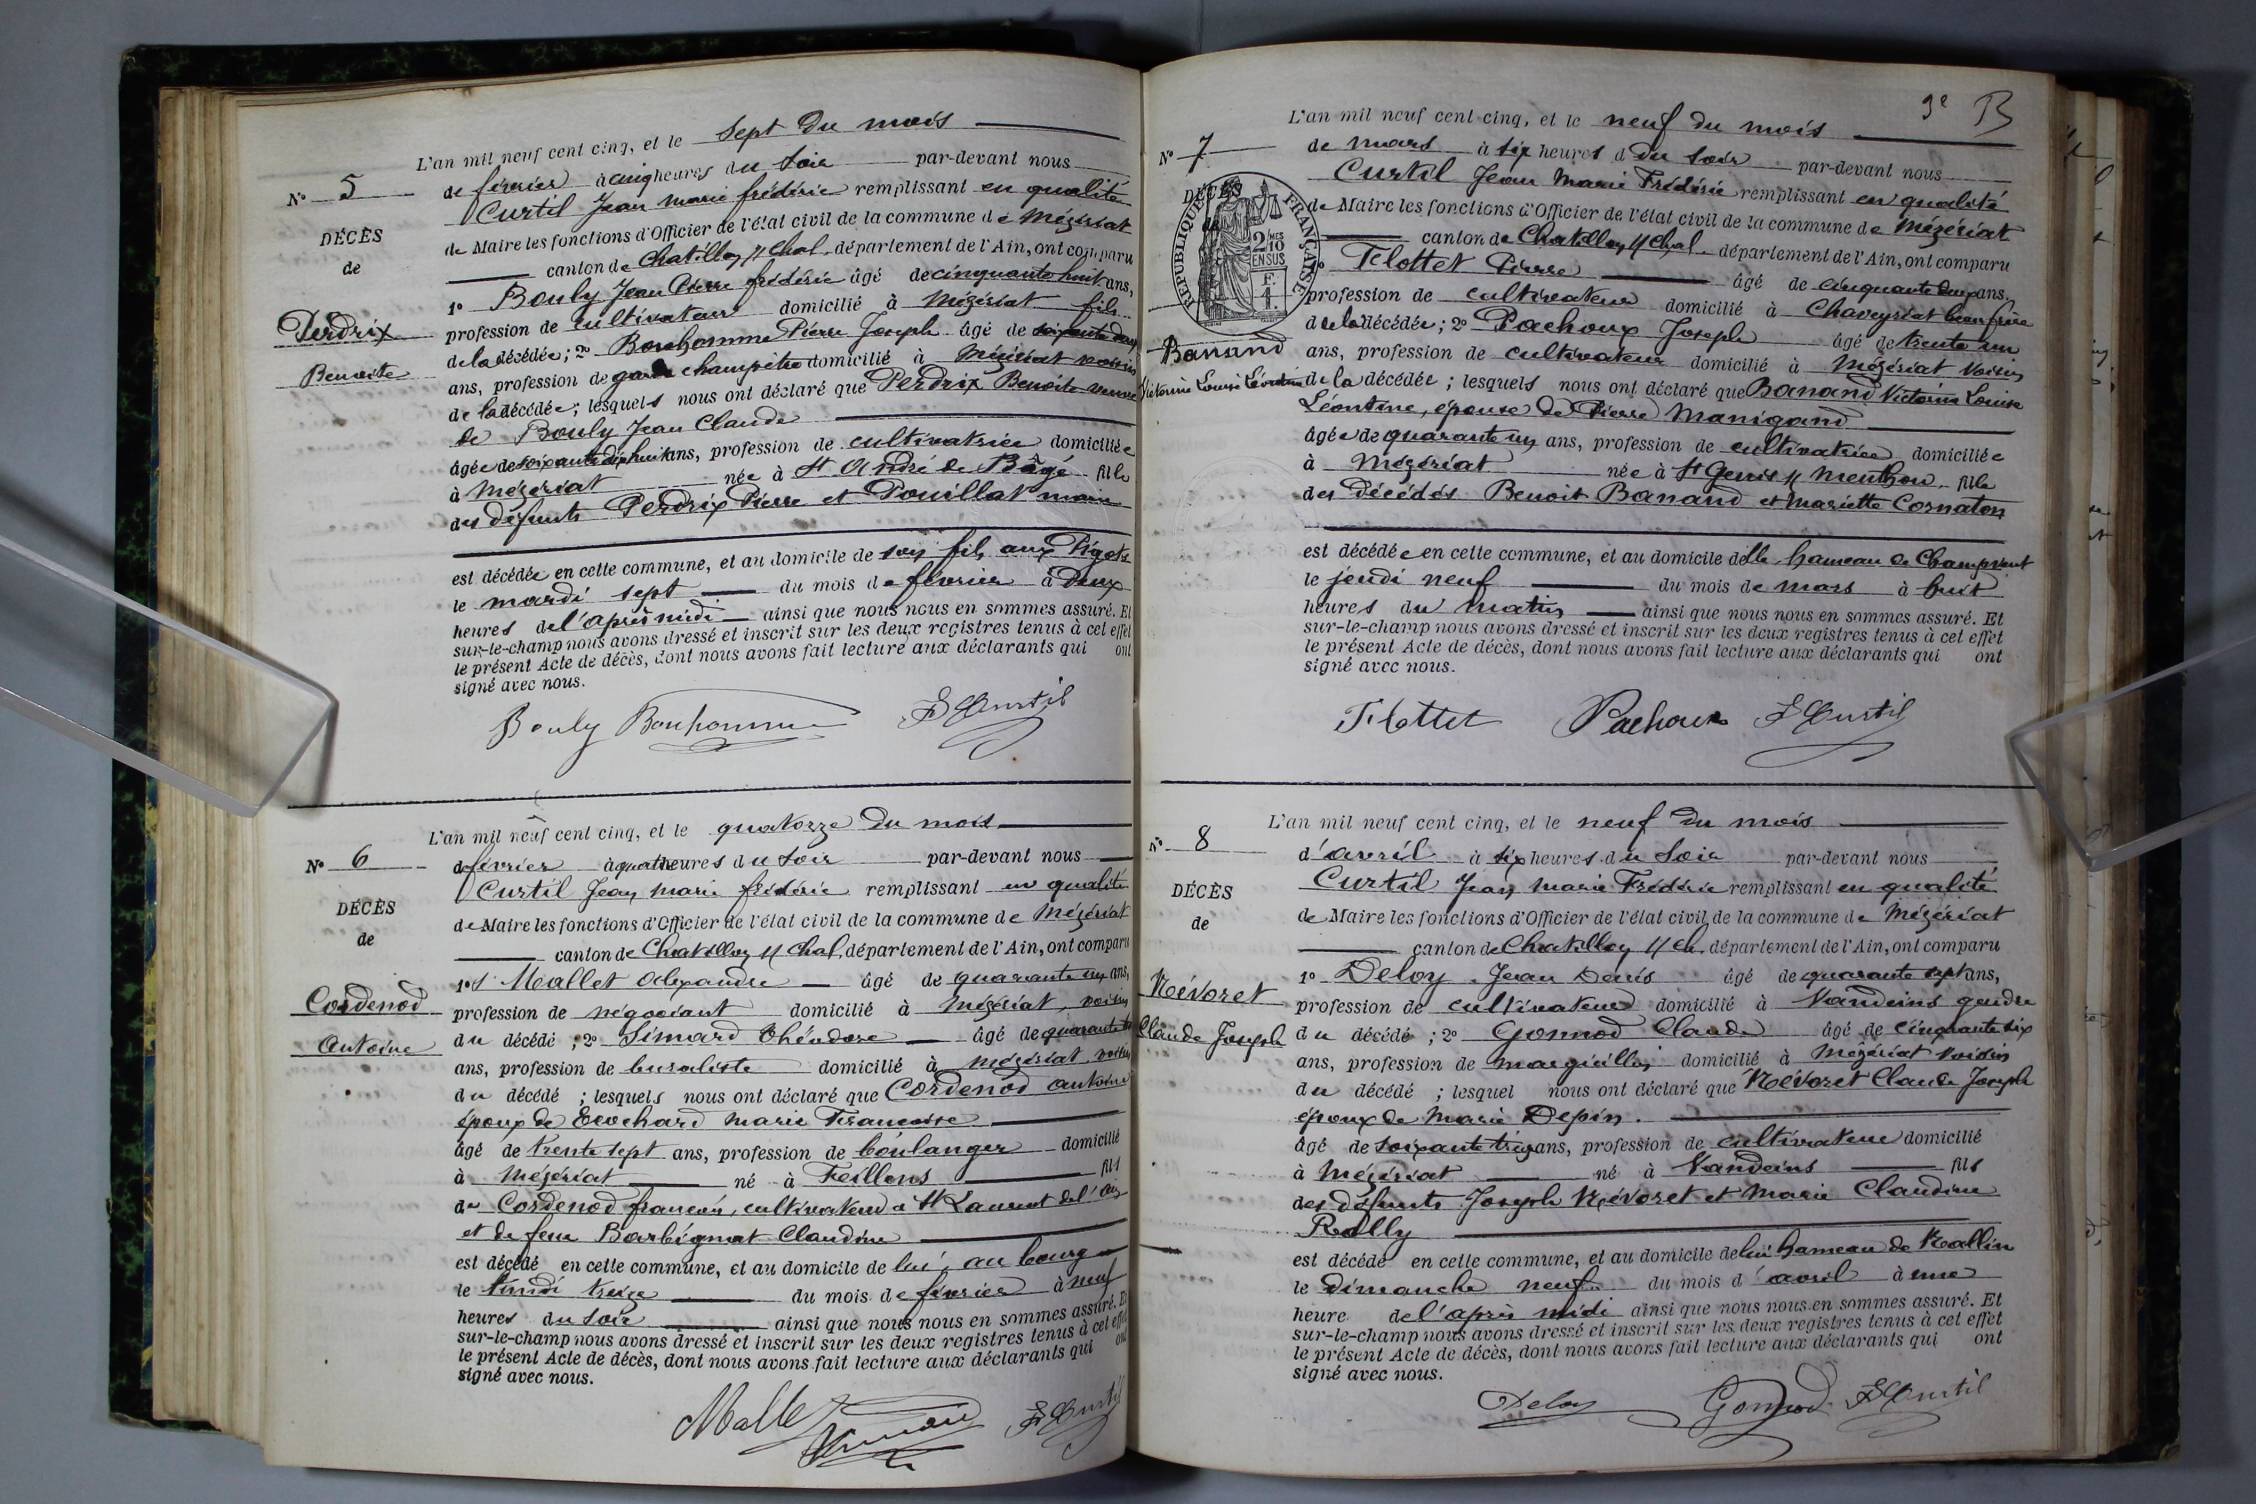 L'an mil neuf cent cinq, et le sept du mois
N° 5
de février à cinq heures du soir par-devant nous
Curtil Jean Marie frédéric remplissant en qualité
DÉCÈS
de Maire les fonctions d'Officier de l'état civil de la commune de Mézériat
de
canton de Chatillon s/ Chal. département de l'Ain, ont comparu
1° Bouly Jean Pierre frédéric âgé de cinquante huit ans,
Perdrix
profession de cultivateur domicilié à Mézériat fils
de la décédée; 2° Bonhomme Pierre Joseph âgé de soixante deux
Benoite
ans, profession de garde champêtre domicilié à Mézériat voisin
de la décédée; lesquels nous ont déclaré que Perdrix Benoite veuve
de Bouly Jean Claude
âgée de soixante dix huit ans, profession de cultivatrice domiciliée
à Mézériat née à St André de Bâgé fille
des défunts Perdrix Pierre et Pouillat marie
est décédée en cette commune, et au domicile de son fils aux Pigots
le mardi sept du mois de février à deux
heures de l'après midi ainsi que nous nous en sommes assuré. Et
sur-le-champ nous avons dressé et inscrit sur les deux registres tenus à cet effet
le présent Acte de décès, dont nous avons fait lecture aux déclarants qui ont
signé avec nous.
Bouly Bonhomme F Curtil
L'an mil neuf cent cinq, et le quatorze du mois
N° 6
de février à quatre heures du soir par-devant nous
Curtil Jean Marie frédéric remplissant en qualité
DÉCÈS
de Maire les fonctions d'Officier de l'état civil de la commune de Mézériat
de
canton de Chatillon s/ Chal. département de l'Ain, ont comparu
1° Mallet Alexandre âgé de quarante un ans,
Cordenod
profession de négociant domicilié à Mézériat, voisin
Antoine
du décédé; 2° Simard Théodore âgé de quarante
ans, profession de buraliste domicilié à Mézériat voisin
du décédé; lesquels nous ont déclaré que Cordenod antoine
époux de Ecochard Marie Francoise
âgé de trente sept ans, profession de boulanger domicilié
à Mézériat né à Feillens fils
de Cordenod françois, cultivateur à St Laurent de l'Ain
et de feue Barbignat Claudine
est décédé en cette commune, et au domicile de lui, au bourg
le lundi treize du mois de février à neuf
heures du soir ainsi que nous nous en sommes assuré. Et
sur-le-champ nous avons dressé et inscrit sur les deux registres tenus à cet effet
le présent Acte de décès, dont nous avons fait lecture aux déclarants qui ont
signé avec nous.
Mallet F Curtil
9e B
L'an mil neuf cent cinq, et le neuf du mois
N° 7
de mars à six heures du soir par-devant nous
Curtil Jean Marie Frédéric remplissant en qualité
DÉCÈS
de
RÉPUBLIQUE FRANÇAISE
2 MES 10 EN SUS
F. 1
de Maire les fonctions d'Officier de l'état civil de la commune de Mézériat
canton de Chatillon s/ Chal. département de l'Ain, ont comparu
1° Flottet Pierre âgé de cinquante deux ans,
profession de cultivateur domicilié à Chaveyriat beau frère
de la décédée; 2° Pachoux Joseph âgé de trente un
Banand
ans, profession de cultivateur domicilié à Mézériat voisin
Victorine Louise Léontine
de la décédée; lesquels nous ont déclaré que Banand Victorine Louise
Léontine, épouse de Pierre Manigand
âgée de quarante un ans, profession de cultivatrice domiciliée
à Mézériat née à St Genis s/ Menthon fille
des décédés Benoit Banand et Mariette Cornaton
est décédée en cette commune, et au domicile d'elle hameau de Champvent
le jeudi neuf du mois de mars à huit
heures du matin ainsi que nous nous en sommes assuré. Et
sur-le-champ nous avons dressé et inscrit sur les deux registres tenus à cet effet
le présent Acte de décès, dont nous avons fait lecture aux déclarants qui ont
signé avec nous.
Flottet Pachoux F Curtil
L'an mil neuf cent cinq, et le neuf du mois
N° 8
d'avril à six heures du soir par-devant nous
Curtil Jean Marie Frédéric remplissant en qualité
DÉCÈS
de Maire les fonctions d'Officier de l'état civil de la commune de Mézériat
de
canton de Chatillon s/ Ch. département de l'Ain, ont comparu
1° Deloy Jean Denis âgé de quarante sept ans,
Névoret
profession de cultivateur domicilié à Vandeins gendre
Claude Joseph
du décédé; 2° Gonnod Claude âgé de cinquante six
ans, profession de marguillier domicilié à Mézériat voisin
du décédé; lesquel nous ont déclaré que Névoret Claude Joseph
époux de Marie Depin.
âgé de soixante treize ans, profession de cultivateur domicilié
à Mézériat né à Vandeins fils
des défunts Joseph Névoret et Marie Claudine
Rolly
est décédé en cette commune, et au domicile de lui hameau de Vallin
le dimanche neuf du mois d'avril à une
heure de l'après midi ainsi que nous nous en sommes assuré. Et
sur-le-champ nous avons dressé et inscrit sur les deux registres tenus à cet effet
le présent Acte de décès, dont nous avons fait lecture aux déclarants qui ont
signé avec nous.
Deloy Gonnod F Curtil